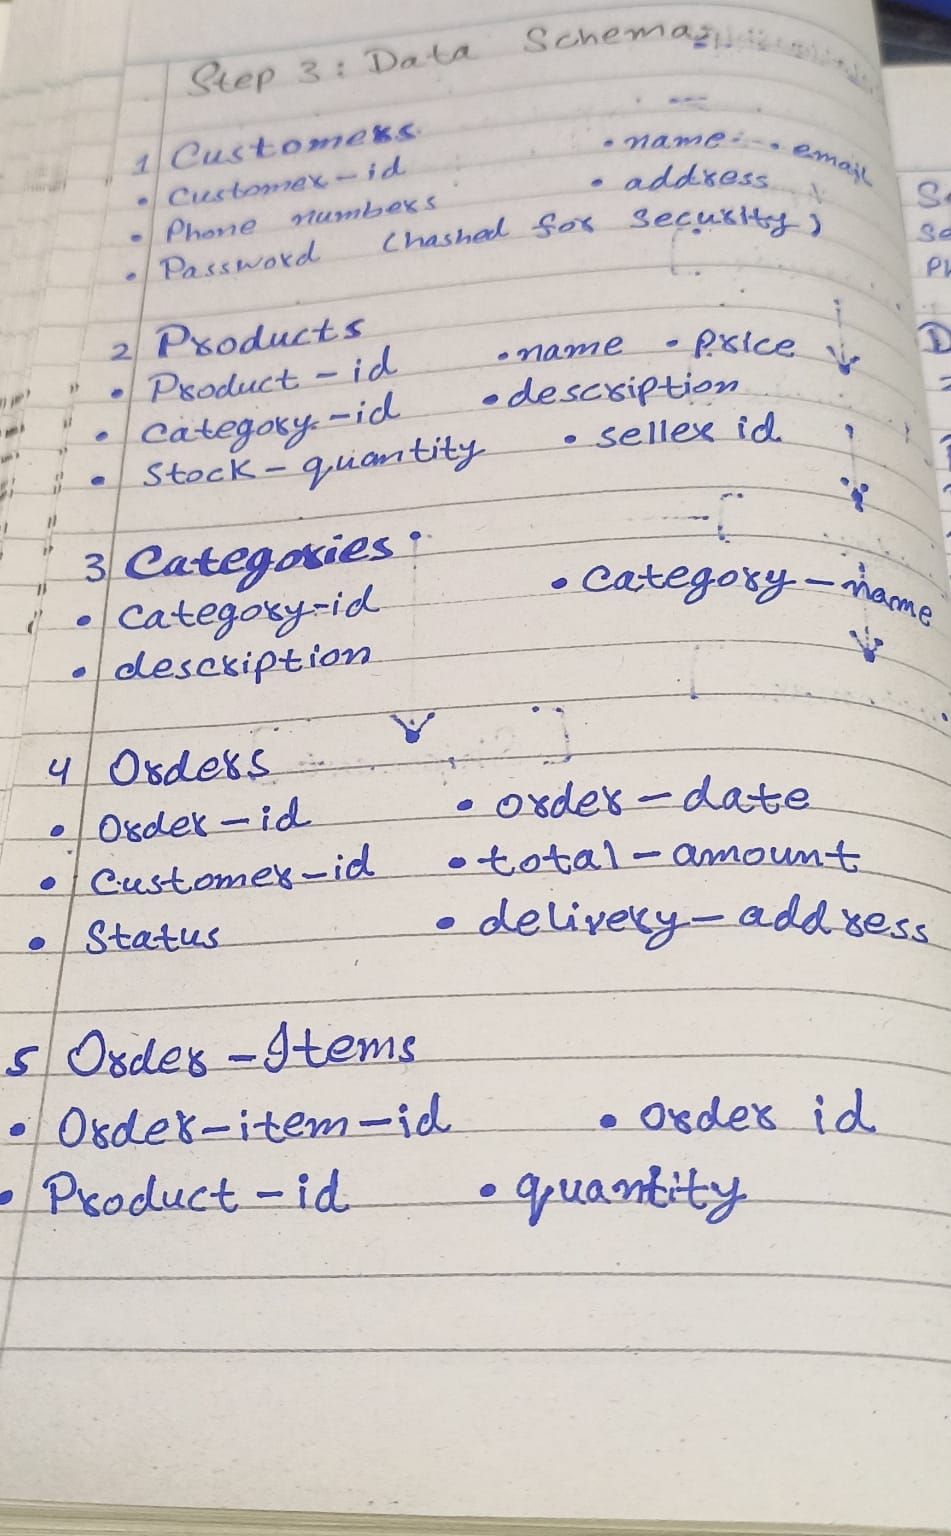 Step 3: Data Schema:
1 Customers
• name • email
• Customer-id
• address
• Phone numbers
• Password (hashed for security)
2 Products
• Product-id • name • Price
• Category-id • description
• Stock-quantity • seller id
3 Categories
• Category-id • Category-name
• description
4 Orders
• Order-id • order-date
• Customer-id • total-amount
• Status • delivery-address
5 Order-Items
• Order-item-id • order id
• Product-id • quantity